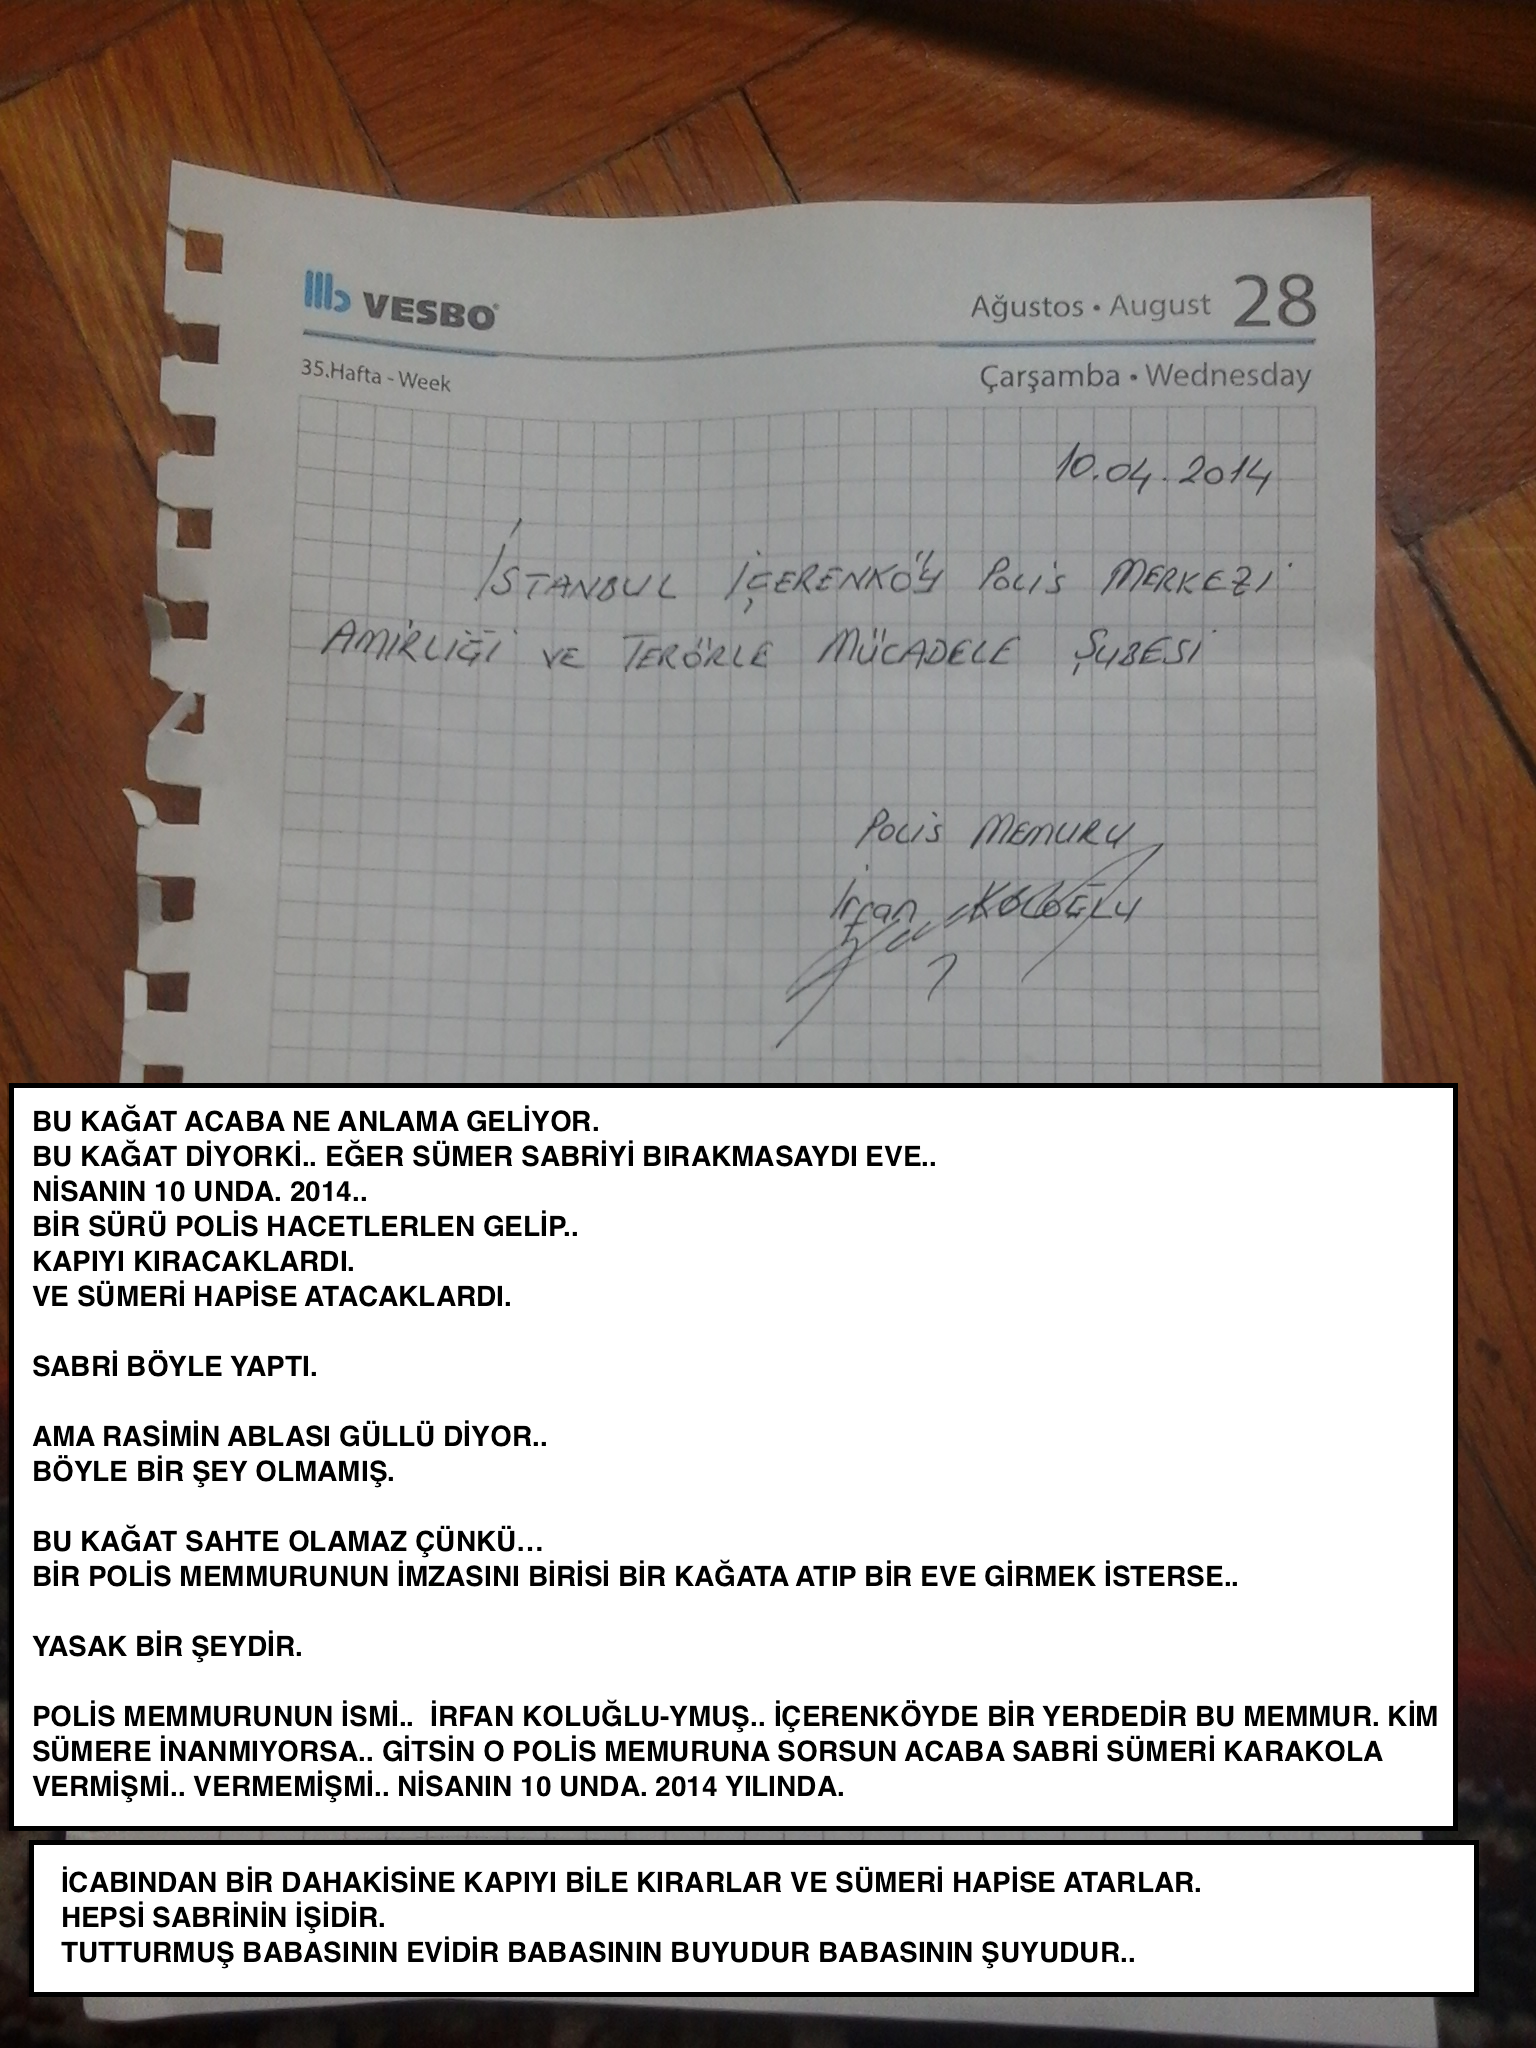 VESBO
Ağustos • August 28
35.Hafta - Week
Çarşamba • Wednesday
10.04.2014
İSTANBUL İÇERENKÖY POLİS MERKEZİ
AMİRLİĞİ VE TERÖRLE MÜCADELE ŞUBESİ
POLİS MEMURU
İrfan KOLOĞLU
BU KAĞAT ACABA NE ANLAMA GELİYOR.
BU KAĞAT DİYORKİ.. EĞER SÜMER SABRİYİ BIRAKMASAYDI EVE..
NİSANIN 10 UNDA. 2014..
BİR SÜRÜ POLİS HACETLERLEN GELİP..
KAPIYI KIRACAKLARDI.
VE SÜMERİ HAPİSE ATACAKLARDI.
SABRİ BÖYLE YAPTI.
AMA RASİMİN ABLASI GÜLLÜ DİYOR..
BÖYLE BİR ŞEY OLMAMIŞ.
BU KAĞAT SAHTE OLAMAZ ÇÜNKÜ...
BİR POLİS MEMMURUNUN İMZASINI BİRİSİ BİR KAĞATA ATIP BİR EVE GİRMEK İSTERSE..
YASAK BİR ŞEYDİR.
POLİS MEMMURUNUN İSMİ.. İRFAN KOLUĞLU-YMUŞ.. İÇERENKÖYDE BİR YERDEDİR BU MEMMUR. KİM
SÜMERE İNANMIYORSA.. GİTSİN O POLİS MEMURUNA SORSUN ACABA SABRİ SÜMERİ KARAKOLA
VERMİŞMİ.. VERMEMİŞMİ.. NİSANIN 10 UNDA. 2014 YILINDA.
İCABINDAN BİR DAHAKİSİNE KAPIYI BİLE KIRARLAR VE SÜMERİ HAPİSE ATARLAR.
HEPSİ SABRİNİN İŞİDİR.
TUTTURMUŞ BABASININ EVİDİR BABASININ BUYUDUR BABASININ ŞUYUDUR..